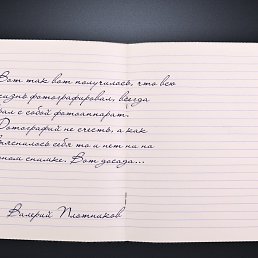 Вот так вот получилось, что всю
жизнь фотографировал, всегда
брал с собой фотоаппарат.
Фотографий не счесть, а как
выяснилось себя то и нет ни на
одном снимке. Вот досада...
Валерий Плотников